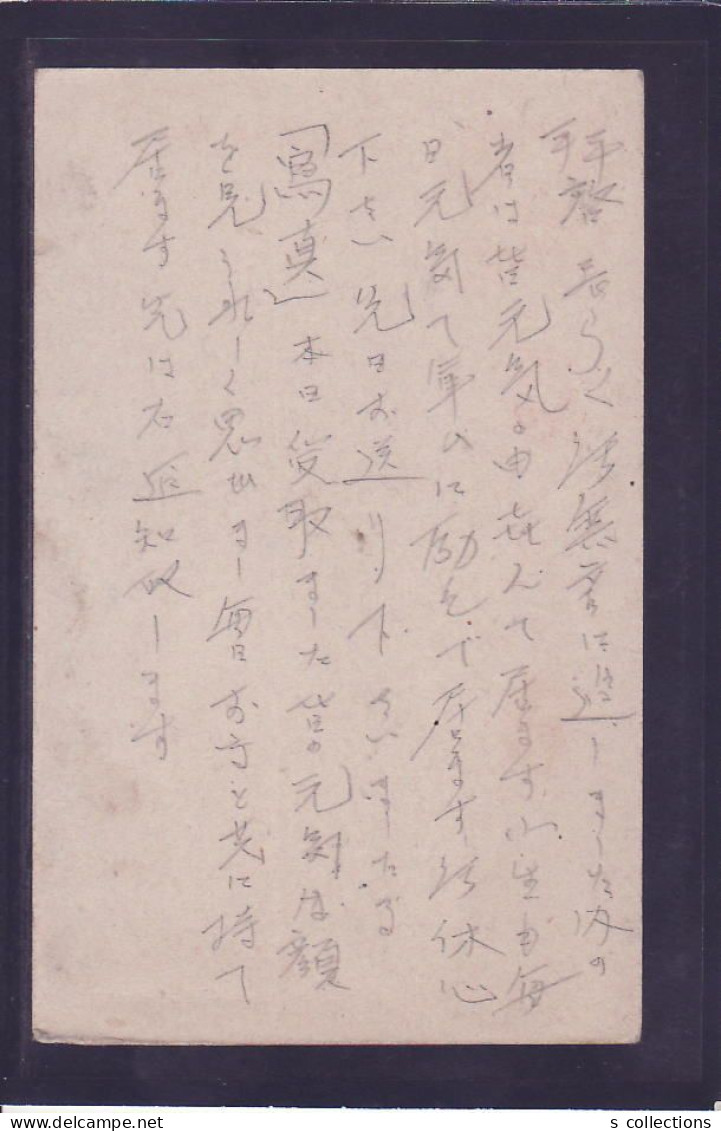 拝啓 長らく御無音に過しました内の
者は皆元気の由喜んで居ます小生も毎
日元気で軍ムに励んで居ます御休心
下さい先日お送り下さいました
「寫真」本日受取ました皆の元気な顔
を見うれしく思ひます毎日お守と共に持て
居ます先は右通知致します
s collections